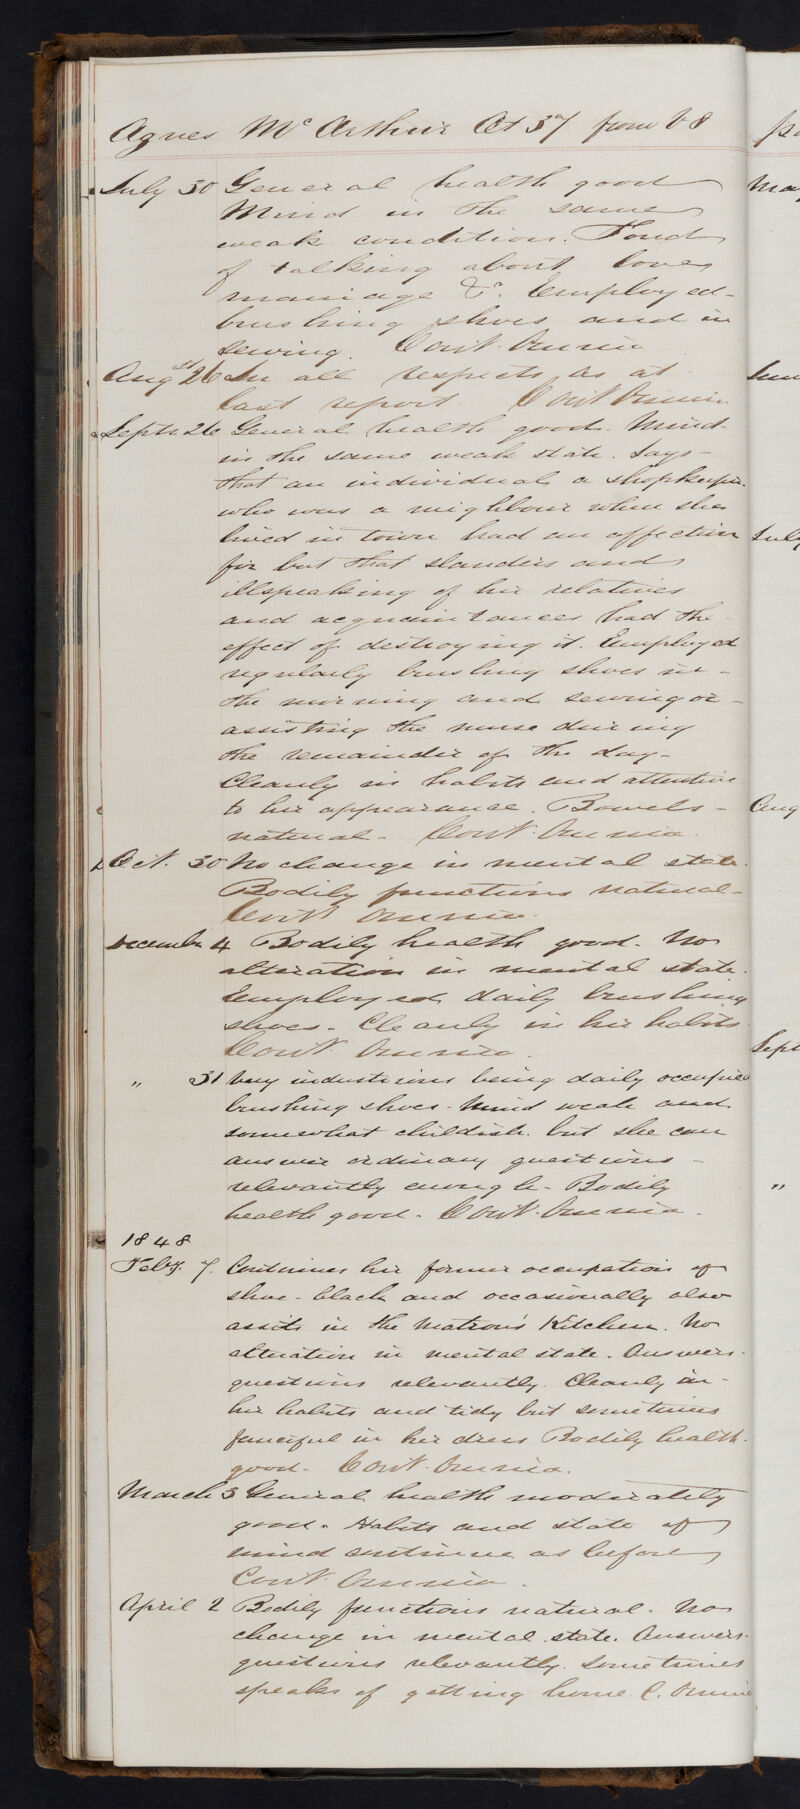 Agnes McArthur Aet 37 from V 8
July 30 General health good
Mind in the same
weak condition. Fond
of talking about love
marriage &c. Employed
brushing shoes and in
sewing. Cont. Omnia
Augst 26 In all respects as at
last report. Cont Omnia
Septr 26 General health good. Mind
in the same weak state. Says
that an individual a shopkeeper
who was a neighbour when she
lived in town had an affection
for but that slanders and
illspeaking of her relatives
and acquaintances had the
effect of destroying it. Employed
regularly brushing shoes in
the morning and sewing or
assisting the nurse during
the remainder of the day.
Cleanly in habits and attentive
to her appearance. Bowels
natural. Cont. Omnia.
Oct. 30 No change in mental state.
Bodily functions natural.
Cont Omnia.
December 4 Bodily health good. No
alteration in mental state.
Employed daily brushing
shoes. Cleanly in her habits
Cont. Omnia.
" 31 Very industrious being daily occupied
brushing shoes. Mind weak and
somewhat childish. but she can
answer ordinary questions
relevantly enough. Bodily
health good. Cont. Omnia.
1848
Feby. 7. Continues her former occupation of
shoe-black and occasionally also
assists in the Matron's Kitchen. No
alteration in mental state. Answers
questions relevantly. Cleanly in
her habits and tidy but sometimes
fanciful in her dress. Bodily health
good. Cont. Omnia.
March 3 General health moderately
good. Habits and state of
mind continue as before
Cont. Omnia.
April 2 Bodily functions natural. No
change in mental state. Answers
questions relevantly. Sometimes
speaks of getting home. C. Omnia
May
June
July
Aug
Sept
"